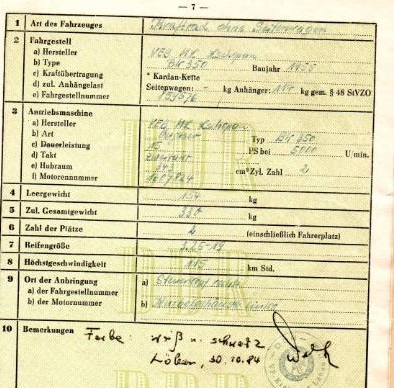 — 7 —
1 Art des Fahrzeuges Kraftrad ohne Seitenwagen
2 Fahrgestell
a) Hersteller VEB MK Zschopau
b) Type BK 350 Baujahr 1955
c) Kraftübertragung * Kardan-Kette
d) zul. Anhängelast Seitenwagen: - kg Anhänger: kg gem. § 48 StVZO
e) Fahrgestellnummer
3 Antriebsmaschine
a) Hersteller VEB MK Zschopau
b) Art Typ BK 350
c) Dauerleistung 15 PS bei 5000 U/min.
d) Takt Zweitakt
e) Hubraum 343 cm³ Zyl. Zahl 2
f) Motorennummer
4 Leergewicht kg
5 Zul. Gesamtgewicht kg
6 Zahl der Plätze 2 (einschließlich Fahrerplatz)
7 Reifengröße 3.25-19
8 Höchstgeschwindigkeit 115 km Std.
9 Ort der Anbringung
a) der Fahrgestellnummer a)
b) der Motornummer b)
10 Bemerkungen Farbe: weiß u. schwarz
30.10.84
DDR